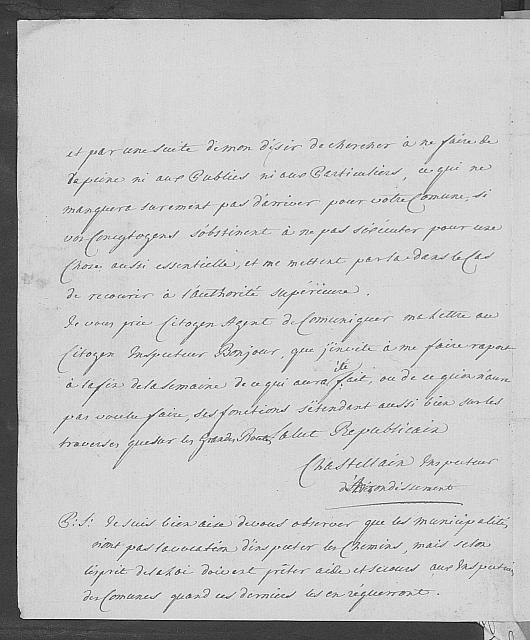 et par une suite de mon désir de chercher à ne faire de
la peine ni aux Publics ni aux Particuliers, ce qui ne
manquera surement pas d'arriver pour votre Comune, si
vos Concytoyens s'obstinent à ne pas s'éxécuter pour une
Chose aussi essentielle, et me mettent par la dans le Cas
de recourir à l'authorité supérieure.
Je vous prie Citoyen Agent de Comuniquer ma lettre au
Citoyen Inspecteur Bonjour, que j'invite à me faire raport
à la fin de la semaine de ce qui aura été fait, ou de ce qu'on n'aura
pas voulu faire, ses fonctions s'étendant aussi bien sur les
traverses que sur les Grandes Routes. Salut Republicain
Chastellain Inspecteur
d'Arrondissement
P: S: Je suis bien aise de vous observer que les municipalités
n'ont pas la vocation d'inspecter les Chemins, mais selon
l'esprit de la Loi doivent prêter aide et secours aux Inspecteurs
des Comunes quand ces derniers les en réquerront.